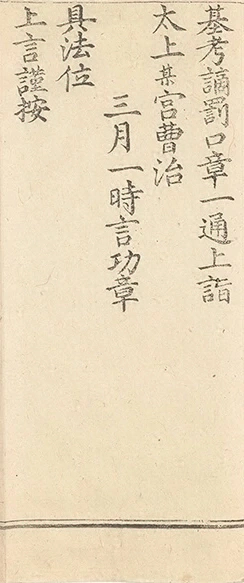 基考謫罰口章一通上詣
太上某宮曹治
三月一時言功章
具法位
上言謹按